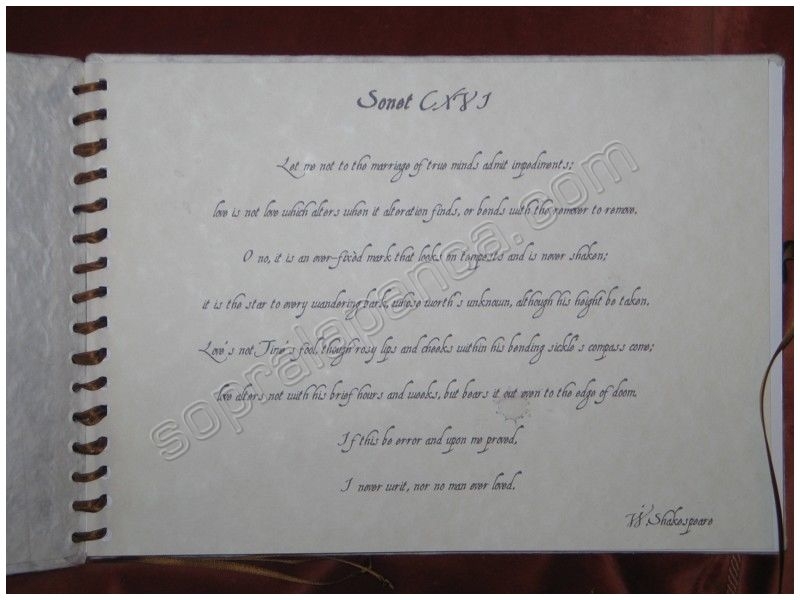 Sonet CXVI
Let me not to the marriage of true minds admit impediments;
love is not love which alters when it alteration finds, or bends with the remover to remove.
O no, it is an ever-fixèd mark that looks on tempests and is never shaken;
it is the star to every wandering bark, whose worth's unknown, although his height be taken.
Love's not Time's fool, though rosy lips and cheeks within his bending sickle's compass come;
love alters not with his brief hours and weeks, but bears it out even to the edge of doom.
If this be error and upon me proved,
I never writ, nor no man ever loved.
W. Shakespeare
sopralapanca.com